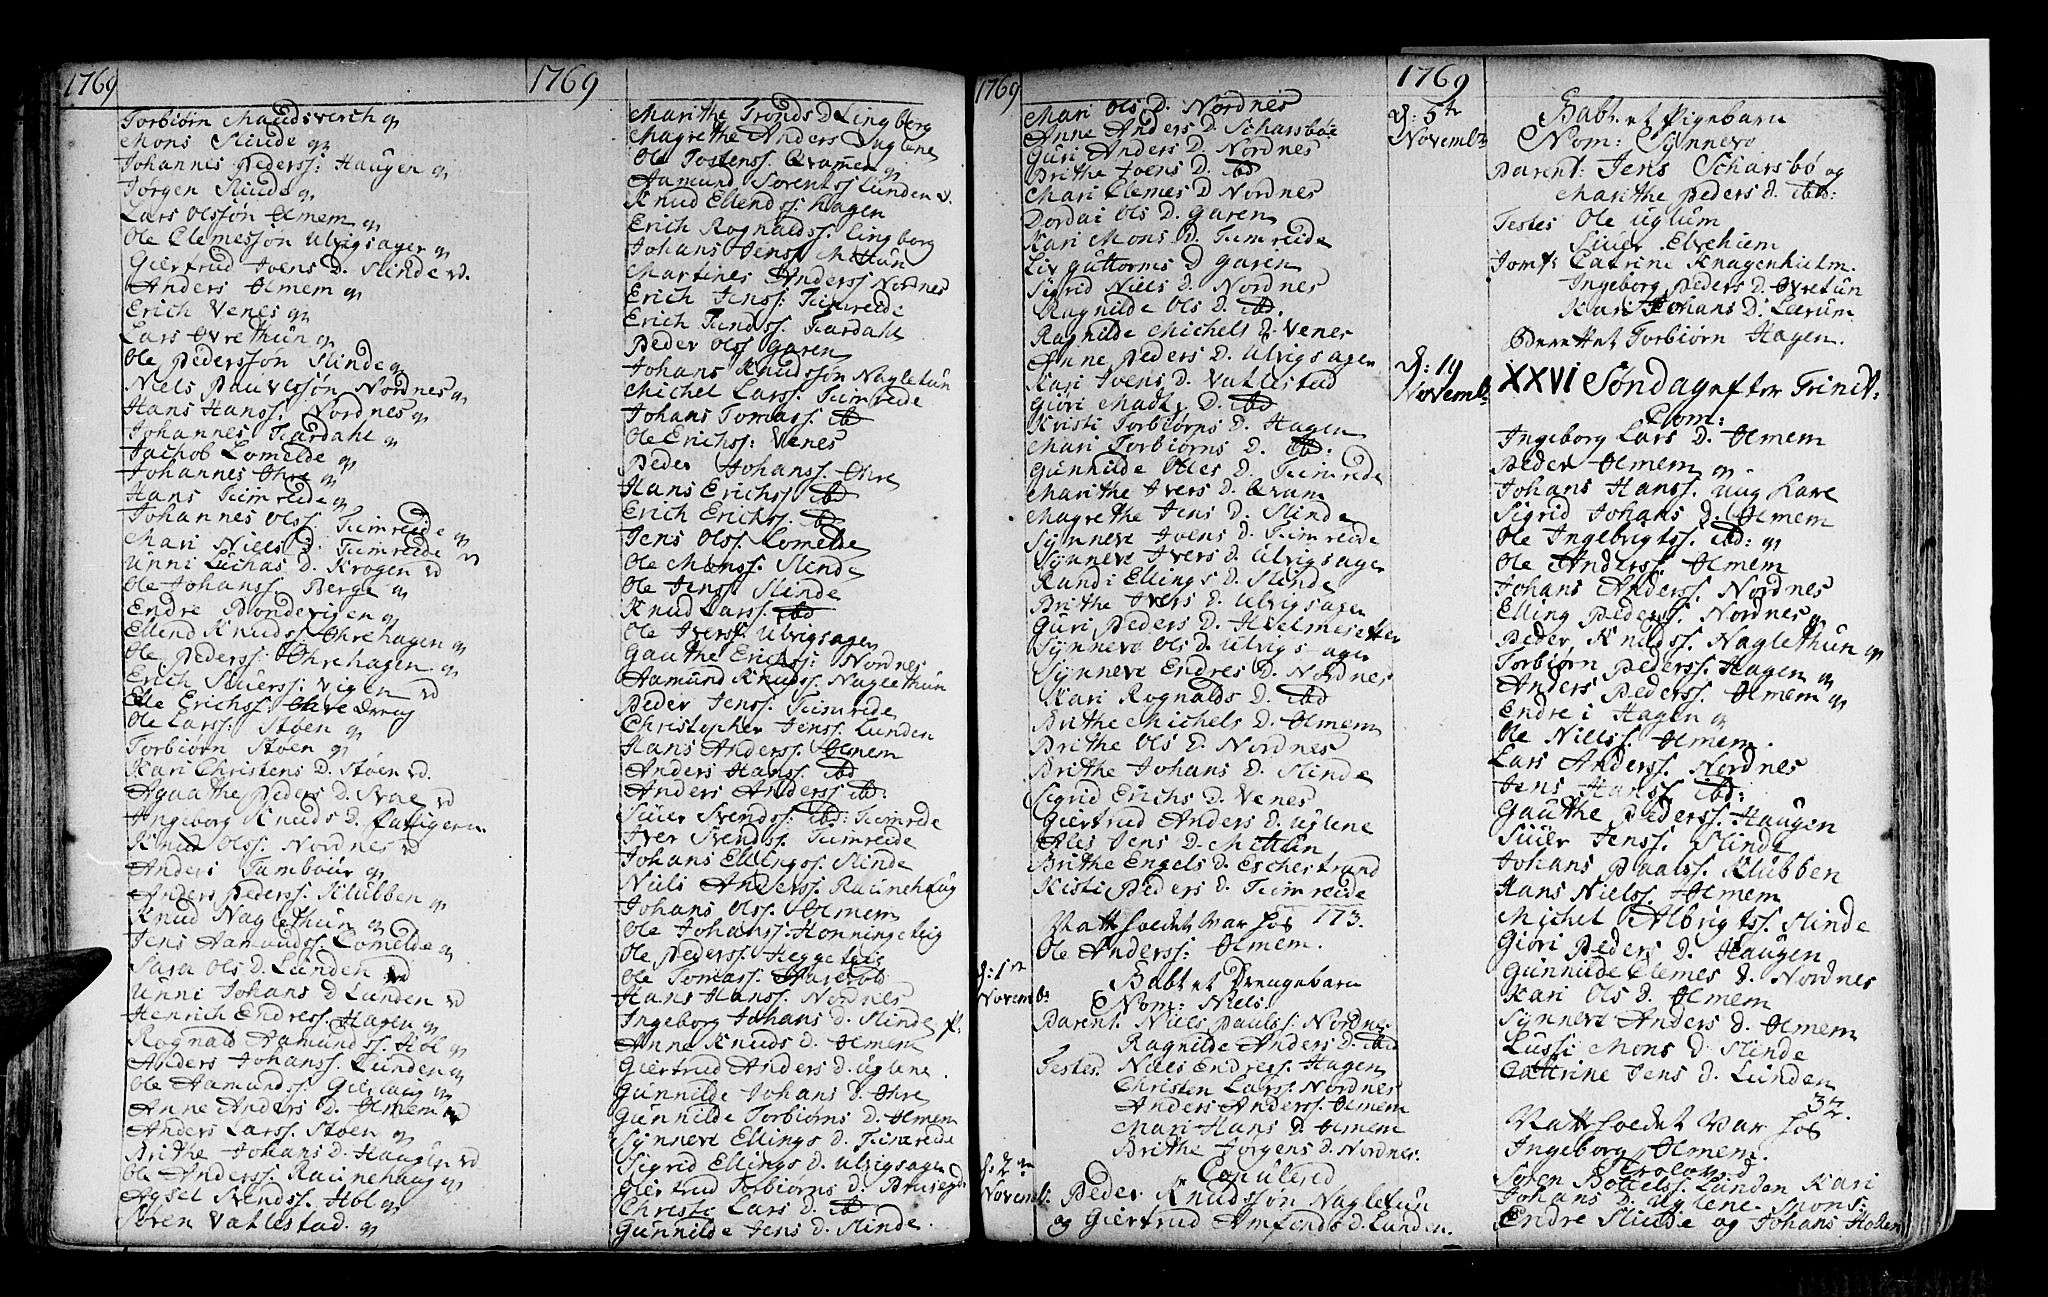 1769
Torbiørn Maudsverch qv
Mons Slinde qv
Johannes Pederss: Haugen qv
Jørgen Slinde qv
Lars Olssøn Ølmem qv
Ole Clemessøn Ulvigsager qv
Giertrud Joens D. Slinde vd.
Anders Ølmem qv
Erich Venes qv
Lars Øvrethun qv
Ole Pederssøn Slinde qv
Niels Pauvelssøn Nordnes qv
Hans Hanss. Nordnes qv
Johannes Fardahl qv
Jachob Lomelde qv
Johannes Øhre qv
Hans Fimreide qv
Johannes Olss. Fimreide qv
Mari Niels D. Fimreide vd
Unni Luchas D. Krogen vd
Ole Johanss. Berge qv
Endre Bondevigen qv
Ellend Knudss. Øhrehagen qv
Ole Pederss: Øhrehagen qv
Erich Siuerss. Vigen vd
Ole Erichss. Øhre Dreng
Ole Larss. Støen qv
Torbiørn Støen qv
Kari Christens D. Støen vd.
Agaathe Peders D. Svae vd
Ingeborg Knuds D. fattigem.
Knud Olss. Nordnes vd
Anders Tambour qv
Anders Pederss. Klubben qv
Knud Naglethun qv
Jens Aamundss. Lomelde qv
Sara Ols D. Lunden vd
Unni Johans D Lunden vd
Henrich Endress. Hagen qv
Rognald Aamundss. Hol qv
Anders Johanss. Lunden qv
Ole Aamundss. Gierlaug qv
Anne Anders D. Ølmem vd
Anders Larss. Støen qv
Brithe Johans D. Haugen vd
Ole Anderss. Raunehaug qv
Axsel Svendss. Hol qv
Søren Vatlestad. qv
1769
Marithe Tronds D Lingberg
Magrethe Anders D Uglene
Ole Tostenss. Qvamen
Aamund Sørenss Lunden v.
Knud Ellendss: Hagen
Erich Rognaldss. Lingborg
Johans Jenss. Mittun
Martines Anderss Nordnes
Erich Jenss: Fimreide
Erich Findss. Fardahl
Peder Olss Garen
Johans Knudssøn Nagletun
Michel Larss. Fimreide
Johans Tomass. ibd
Ole Erichss: Venes
Peder Johanss. Øhre
Hans Erichss. ibd
Erich Erichss. ibd
Jens Olss. Lomelde
Ole Monss. Slinde
Ole Jenss. Slinde
Knud Larss. ibd
Ole Iverss. Ulvigsagen
Gauthe Erichss: Nordnes
Aamund Knudss. Naglethun
Peder Jenss. Fimreide
Christopher Jenss. Lunden
Hans Anderss. Ølmem
Anders Hanss. ibd
Anders Anderss ibd.
Siuer Svendss: ibd: Fimreide
Iver Svendss. Fimreide
Johans Ellingss. Slinde
Niels Anderss. Raunehaug
Johans Olss. Ølmem
Ole Johanss. Honningevig
Ole Pederss. Heggevig
Ole Tomass.
Hans Hanss. Nordnes
Ingeborg Johans D. Slinde f.
Anne Knuds D. Ølmem
Giertrud Anders D. Uglene.
Gunnilde Johans D. Øhre
Gunnilde Torbiørns D. Ølmem
Synneve Ellings D. Fimreide
Sigrid Ellings D. Ulvigsagen
Giertrud Torbiørns D. Brusegd
Christi Lars D. ib
Gunnilde Jens D. Slinde.
1769
Mari Ols D. Nordnes
Anne Anders D. Scharsbøe
Guri Anders D. Nordnes
Brithe Joens D. ibd
Mari Clemes D Nordnes
Dordai Ols D. Garen
Kari Mons D. Fimreide
Liv Guttorms D Garen
Sigrid Niels D. Nordnes
Ragnilde Ols D. ibd.
Ragnilde Michels D. Venes
Anne Peders D. Ulvigsagen
Kari Joens D. Vatlestad
Giøri Mads D. ibd
Kristi Torbiørns D. Hagen
Mari Torbiørns D. ibd.
Gunnilde Oles D. Fimreide
Marithe Ivers D. Qvam
Magrethe Jens D. Slinde
Synneve Joens D. Fimreide
Synneve Ivers D. Ulvigsagen
Randi Ellings D. Slinde
Brithe Ivers D. Ulvigsagen
Guri Peders D. Hielmesetter
Synneve Ols D. Ulvigsager
Synneve Endres D. Nordnes
Kari Rognalds D. ibd
Brithe Michels D. Ølmem
Brithe Ols D. Nordnes
Brithe Johans D. Slinde
Sigrid Erichs D. Venes
Giertrud Anders D. Uglene
Alis Jens D. Mittun
Brithe Engels D. Eschestrand
Kisti Peders D. Fimreide
Natthsoedet var hos 173.
Ole Anderss: Ølmem.
d: 1te
Novemb:
Babt et Drengebarn
Nom: Niels.
Parent. Niels Paulss. Nordnes
Ragnilde Anders D. ibd
Testes. Niels Endress. Hagen
Christen Larss. Nordnes
Anders Anderss. Ølmem
Mari Hans D Ølmem
Brithe Jørgens D. Nordnes.
d: 2den
Novemb:
Copulered
Peder Knudssøn Nagletun
og Giertrud Amfends D. Lunden.
1769
d: 5te
Novemb:
Babt. et Pigebarn
Nom: Synneva
Parent: Jens Scharsbø og
Marithe Peders D. ibd:
Testes Ole Uglum
Siuer Elvehiem
Jomf: Catrine Knagenhielm.
Ingeborg Peders D. Øvretun
Kari Johans D. Leerum
Berettet Torbiørn Hagen.
d: 19
Novemb:
XXVI Søndag efter Trinit:
Com:
Ingeborg Lars D. Ølmem
Peder Ølmem qv.
Johans Hanss. ung Karl
Sigrid Johans D. Ølmem
Ole Ingebrigtss. ibd: qv
Ole Anderss. Ølmem
Johans Anderss. Nordnes
Elling Pederss. Nordnes qv
Peder Knudss. Naglethun qv
Torbiørn Pederss. Hagen qv
Anders Pederss. Ølmem qv
Endre i Hagen qv
Ole Nielss. Ølmem.
Lars Anderss. Nordnes
Jens Hanss. ibd:
Gauthe Pederss. Haugen
Siuer Jenss. Slinde
Johans Paalss. Klubben
Hans Nielss. Ølmem
Michel Albrigtss. Slinde
Giøri Peders D. Haugen
Gunnilde Clemes D. Nordnes
Kari Ols D. Ølmem
Synneve Anders D. Ølmem
Lussi Mons D. Slinde
Cattrine Jens D. Lunden
32.
Natthsoedet var hos
Ingeborg Ølmem.
Troloved
Søren Bottelss. Lunden Kari
Johans D. Uglene. Mons:
Endre Slinde og Johans Hollen